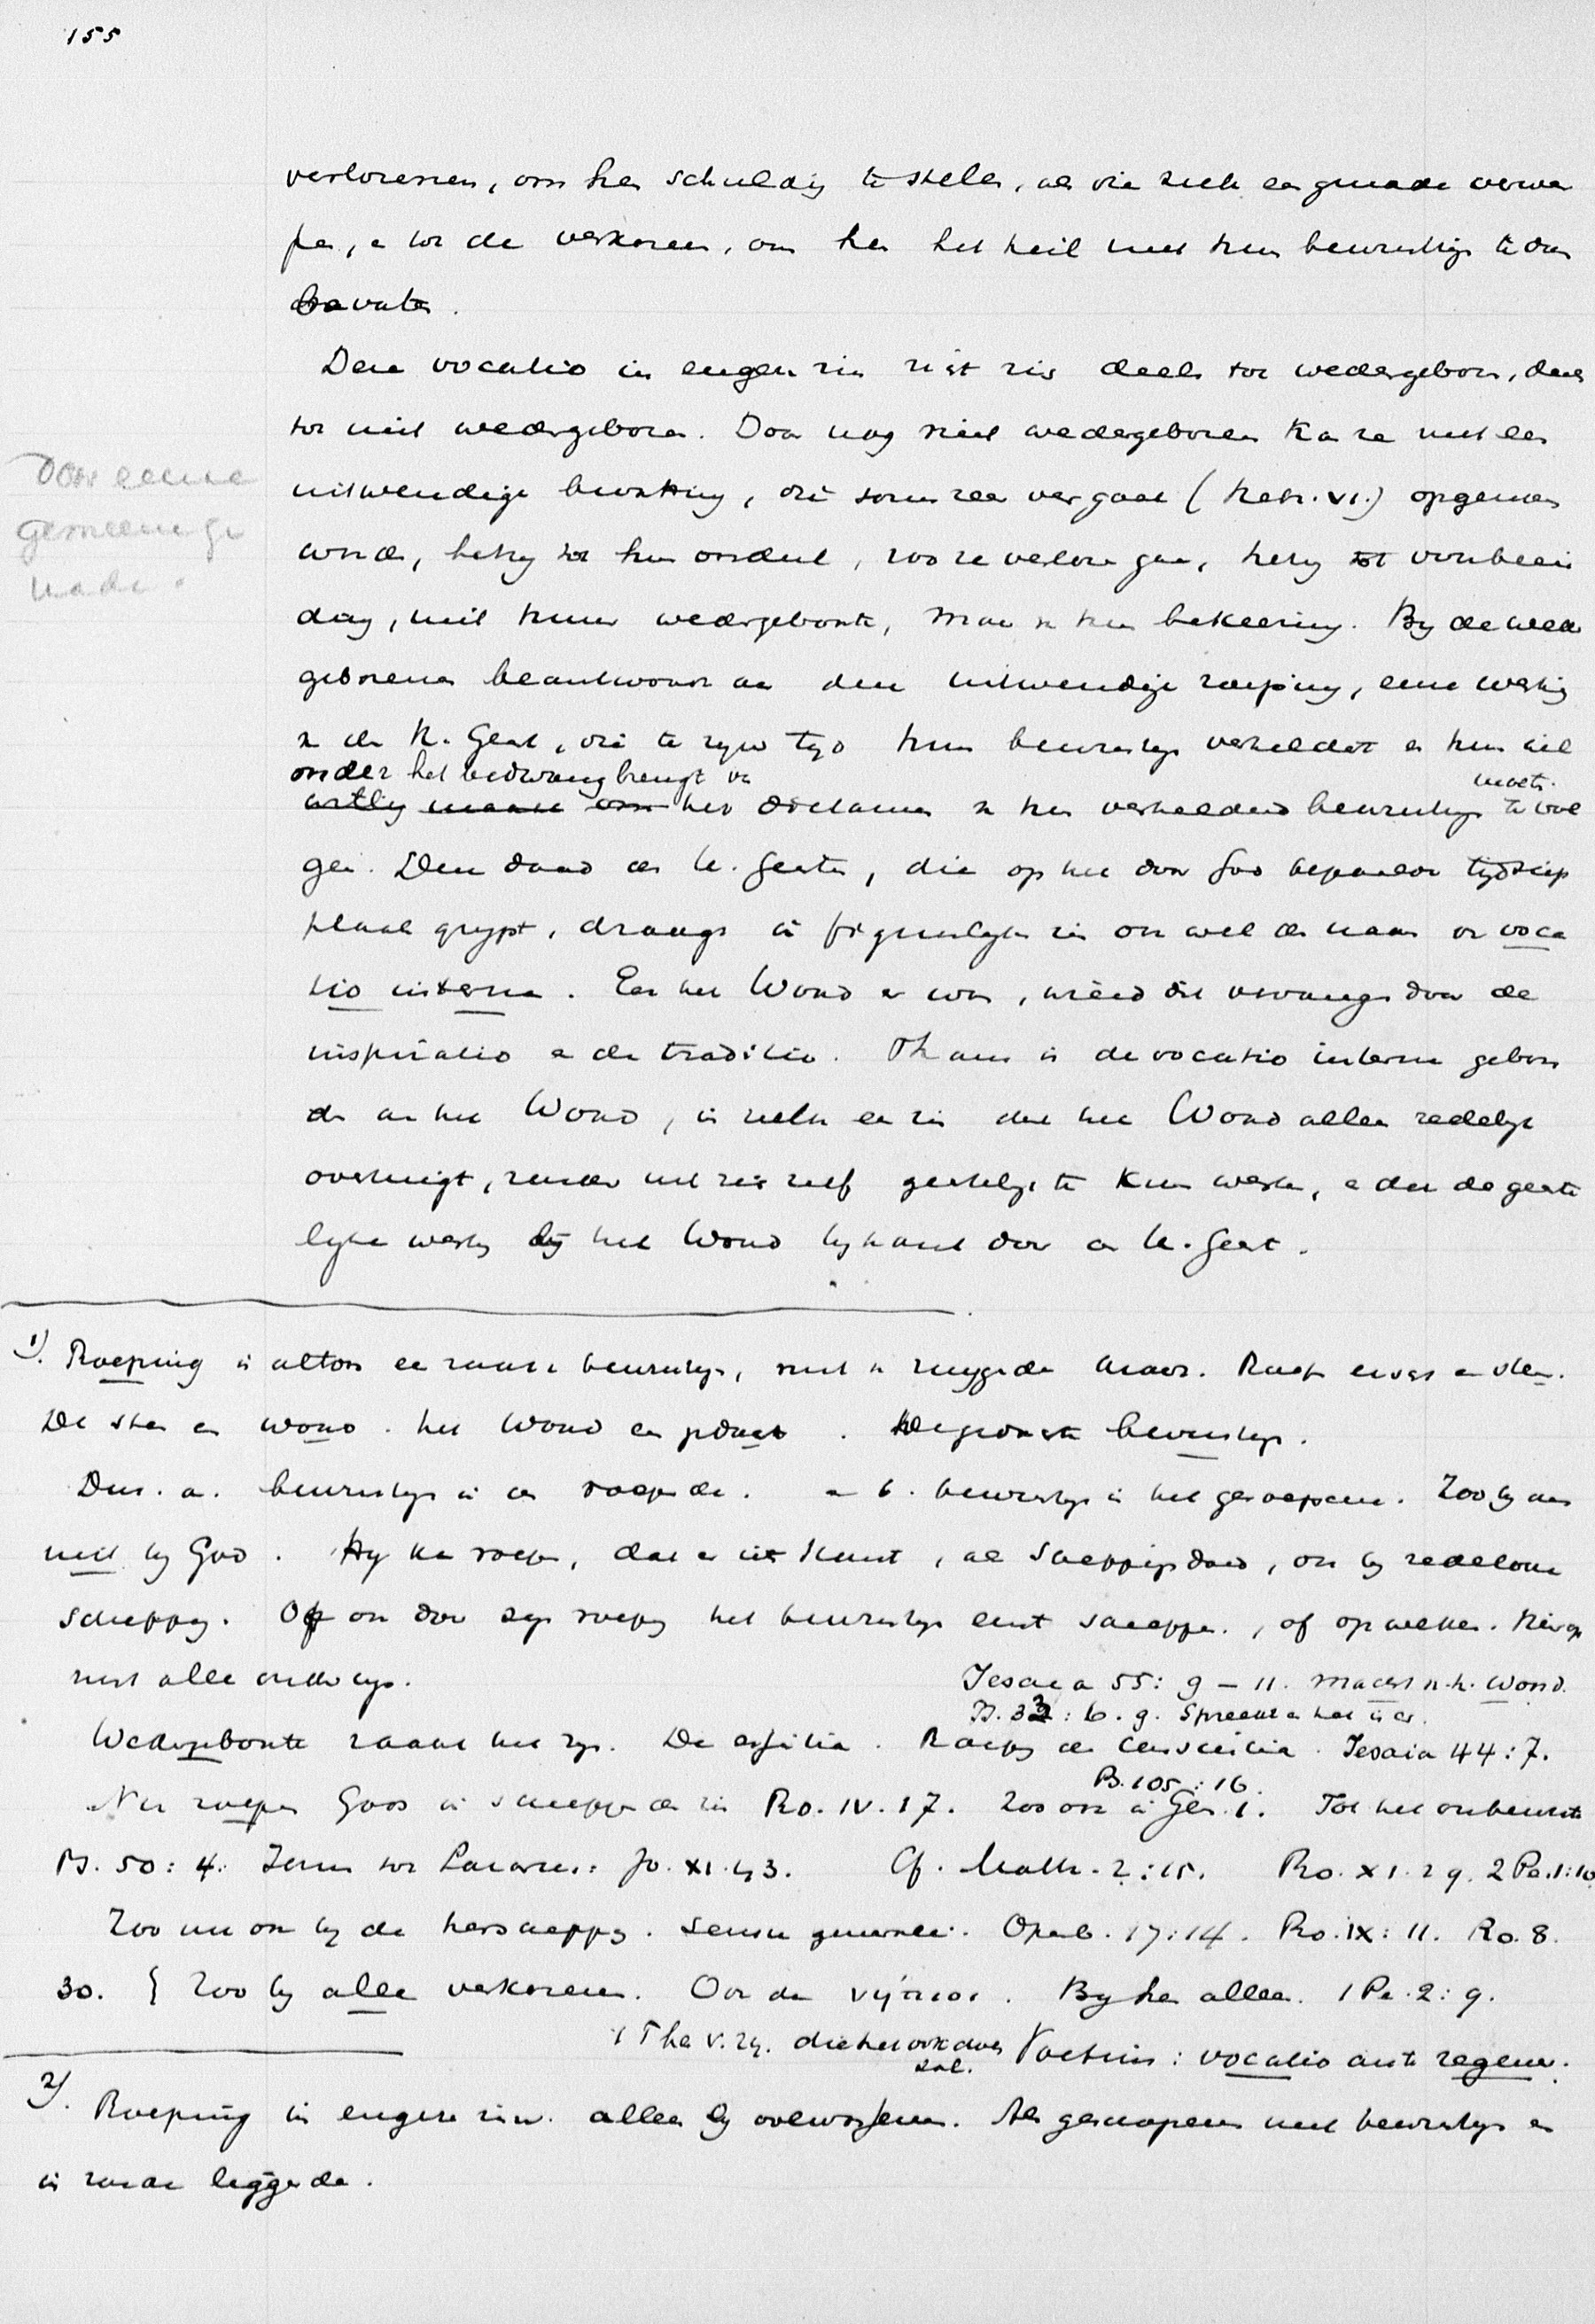 155
verlorenen, om hen schuldig te stellen, als die zich en genade verwer
pen, en tot de verkoren, om hen het heil met hun bewustzijn te doen
bevatten.
Deze vocatio in engen zin richt zich deels tot wedergeboren, deels
tot niet wedergeboren. Door nog niet wedergeboren kan ze met een
Door eene
gemeene ge
nade.
uitwendige bewerking, die soms zeer ver gaat (Hebr. VI.) opgenomen
worden, hetzij tot hun oordeel, zoo ze verloren gaan, hetzij tot voorberei
ding, niet hunner wedergeboorte, maar van hun bekeering. Bij de weder
geborenen beantwoordt aan deze uitwendige roeping, eene werking
van den H. Geest, die te zijner tijd hun bewustzijn verheldert en hun wil
onder het bedwang brengt van
het dictamen van hun verhelderd bewustzijn te vol
moeten
gen. Deze daad des H. Geestes, die op het door God bepaalde tijdstip
plaats grijpt, draagt in figuurlijken zin ook wel den naam van voca
tio interna. Eer het Woord er was, wierd dit vervangen door de
inspiratio en de traditio. Thans is de vocatio interna gebon
den aan het Woord, in zulk een zin dat het Woord alleen redelijk
overtuigt, zonder uit zich zelf geestelijk te kunnen werken, en dat de geeste
lijke werking bij het Woord bijkomt door den H. Geest.
1). Roeping is altoos een zaak van bewustzijn, niet van zwijgende daad. Roepen eischt een stem.
De stem een woord. Het Woord een gedachte. De gedachte bewustzijn.
Dus. a. bewustzijn in den roepende. en b. bewustzijn in het geroepene. Zoo bij ons
niet bij God. Hij kan roepen, dat er niet is, als Scheppingsdaad, ook bij redelooze
schepping. Of ook door zijn roeping het bewustzijn eerst scheppen, of opwekken. Hierop
rust alle onderwijs.
Jesaia 55: 9 – 11. Macht v. h. Woord.
Ps. 33: 6. 9. Spreekt en het is er.
Wedergeboorte raakt het zijn. De Roeping de conscientia. Jesaia 44: 7.
Ps. 105: 16.
Nu roepen Gods in scheppenden zin Ro. IV. 17. Zoo ook in Gen. 1. Tot het onbewuste
Ps. 50: 4. Jezus tot Lazarus: Jo. XI. 43. Cf. Matth. 2: 15. Ro. XI. 29. 2 Pe. 1: 10
Zoo nu ook bij de herschepping. Sensu generali. Openb. 17: 14. Ro. IX: 11. Ro. 8.
30. { Zoo bij alle verkorenen. Ook de νήπιοι. Bij hen allen. 1 Pe. 2: 9.
1 Thess. V. 24. die het ook doen
zal.
Voetius: vocatio ante regener.
2). Roeping in engere zin. alleen bij volwassenen. Als geroepenen met bewustzijn en
in leggende.